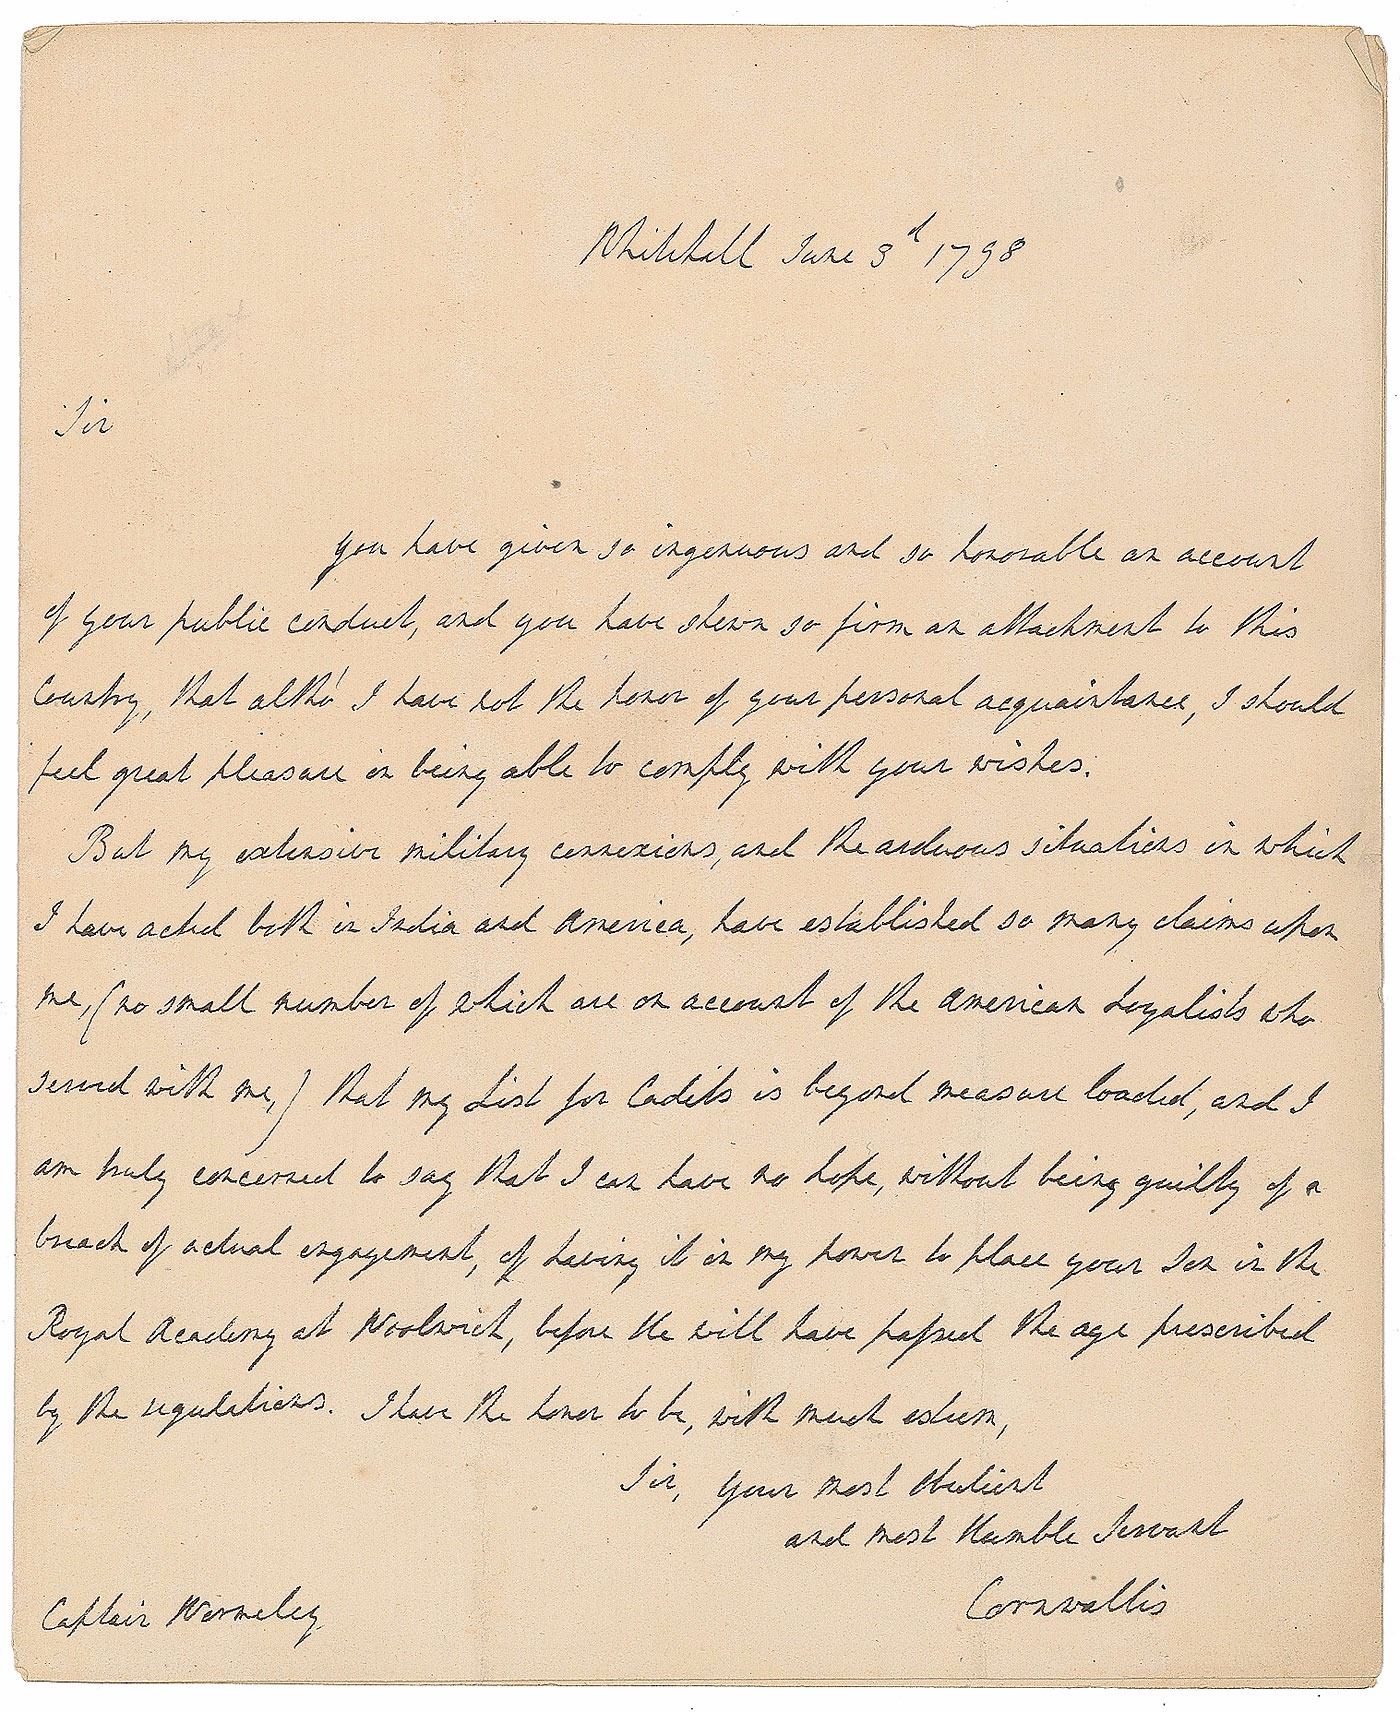 Whitehall June 3d 1798
Sir
you have given so ingenuous and so honorable an account
of your public conduct, and you have shewn so firm an attachment to this
Country, that altho' I have not the honor of your personal acquaintance, I should
feel great pleasure in being able to comply with your wishes.
But my extensive military connexions, and the arduous situations in which
I have acted both in India and America, have established so many claims upon
me, (no small number of which are on account of the American Loyalists who
served with me,) that my List for Cadets is beyond measure loaded, and I
am truly concerned to say that I can have no hope, without being guilty of a
breach of actual engagement, of having it in my power to place your Son in the
Royal Academy at Woolwich, before He will have passed the age prescribed
by the regulations. I have the honor to be, with much esteem,
Sir, your most Obedient
and most Humble Servant
Cornwallis
Captain Wormeley